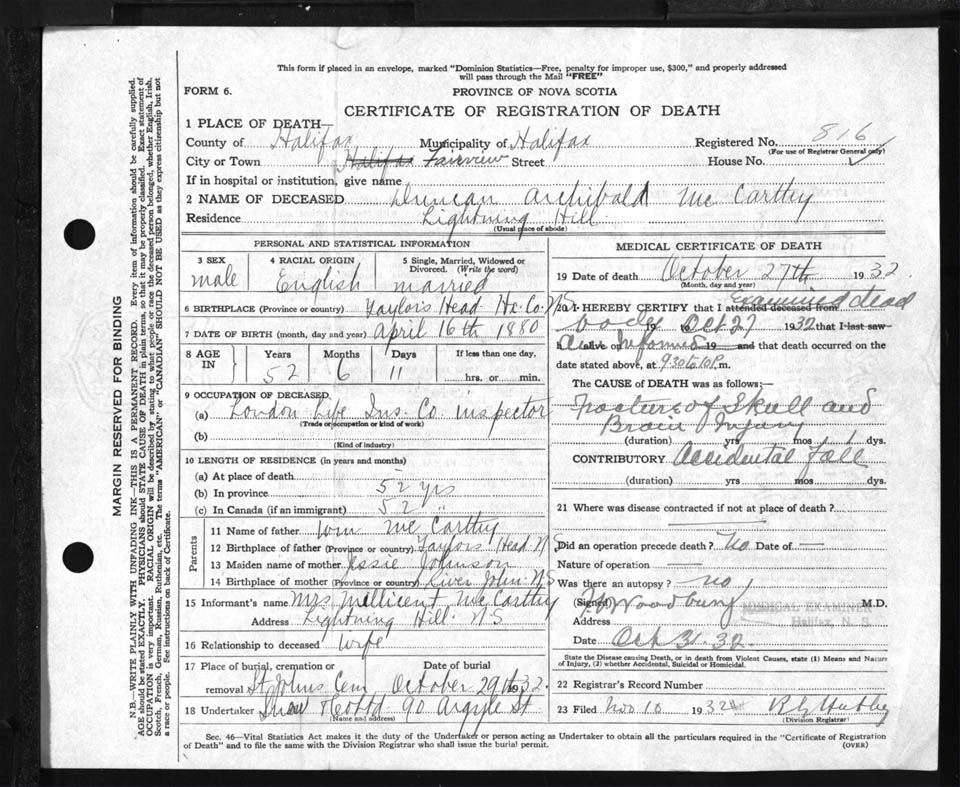 This form if placed in an envelope, marked "Dominion Statistics—Free, penalty for improper use, $300," and properly addressed
will pass through the Mail "FREE"
FORM 6.
PROVINCE OF NOVA SCOTIA
CERTIFICATE OF REGISTRATION OF DEATH
1 PLACE OF DEATH—
County of Halifax Municipality of Halifax Registered No. 816
(For use of Registrar General only)
City or Town Halifax Fairview Street House No.
If in hospital or institution, give name
2 NAME OF DECEASED Duncan Archibald Mc Carthy
Residence Lightning Hill
(Usual place of abode)
PERSONAL AND STATISTICAL INFORMATION
3 SEX
male
4 RACIAL ORIGIN
English
5 Single, Married, Widowed or
Divorced. (Write the word)
married
6 BIRTHPLACE (Province or country) Taylors Head Hx. Co. N.S.
7 DATE OF BIRTH (month, day and year) April 16th 1880
8 AGE IN
Years Months Days If less than one day,
52 6 11 hrs. or min.
9 OCCUPATION OF DECEASED
(a) London Life Ins. Co. inspector
(Trade, occupation or kind of work)
(b)
(Kind of industry)
10 LENGTH OF RESIDENCE (in years and months)
(a) At place of death
(b) In province 52 yrs
(c) In Canada (if an immigrant) 52 "
Parents
11 Name of father Wm Mc Carthy
12 Birthplace of father (Province or country) Taylors Head N.S.
13 Maiden name of mother Jessie Johnson
14 Birthplace of mother (Province or country) River John N.S
15 Informant's name Mrs Millicent Mc Carthy
Address Lightning Hill N.S
16 Relationship to deceased Wife
17 Place of burial, cremation or removal St Johns Cem
Date of burial October 29th 1932
18 Undertaker Snow & Co Ltd 90 Argyle St
(Name and address)
MEDICAL CERTIFICATE OF DEATH
19 Date of death October 27th 1932
(Month, day and year)
20 I HEREBY CERTIFY that I attended deceased from examined dead
body 19 to Oct 27 1932 that I last saw
h alive on Informed 19 and that death occurred on the
date stated above, at 9.30 to 10 P. m.
The CAUSE OF DEATH was as follows:—
Fracture of Skull and
Brain Injury
(duration) yrs mos dys.
CONTRIBUTORY Accidental Fall
(duration) yrs mos dys.
21 Where was disease contracted if not at place of death?
Did an operation precede death? No Date of —
Nature of operation —
Was there an autopsy? no
(Signed) Woodbury M.D.
MEDICAL EXAMINER
Halifax, N. S.
Address
Date Oct 31. 32
State the Disease causing Death, or in death from Violent Causes, state (1) Means and Nature
of Injury, (2) whether Accidental, Suicidal or Homicidal.
22 Registrar's Record Number
23 Filed Nov 10 1932
(Division Registrar)
Sec. 46—Vital Statistics Act makes it the duty of the Undertaker or person acting as Undertaker to obtain all the particulars required in the "Certificate of Registration
of Death" and to file the same with the Division Registrar who shall issue the burial permit.
(OVER)
MARGIN RESERVED FOR BINDING
N.B.—WRITE PLAINLY WITH UNFADING INK—THIS IS A PERMANENT RECORD. Every item of information should be carefully supplied.
AGE should be stated EXACTLY. PHYSICIANS should STATE CAUSE OF DEATH in plain terms, so that it may be properly classified. Exact statement of
OCCUPATION is very important. RACIAL ORIGIN will be described by stating to what people or race the deceased person belonged, whether English, Irish,
Scotch, French, German, Russian, Ruthenian, etc. The terms "AMERICAN" or "CANADIAN" SHOULD NOT BE USED as they express citizenship but not
a race or people. See instructions on back of Certificate.